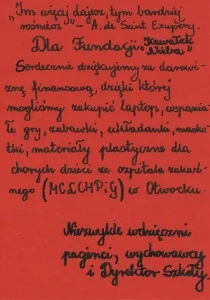 „Im więcej dajesz, tym bardziej
wzrastasz" – A. de Saint Exupéry
Dla Fundacji „Kawałek
Nieba"
Serdecznie dziękujemy za darowi-
znę finansową, dzięki której
mogliśmy zakupić laptop, wspania-
łe gry, zabawki, układanki, masko-
tki, materiały plastyczne dla
chorych dzieci ze szpitala zakaź-
nego (MCLCHPiG) w Otwocku.
Niezwykle wdzięczni
pacjenci, wychowawcy
i Dyrektor Szkoły.